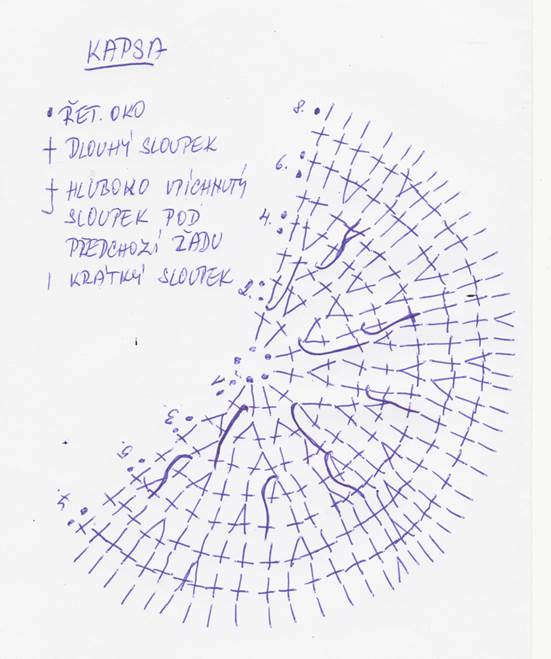 KAPSA
ŘET. OKO
DLOUHÝ SLOUPEK
HLUBOKO VPÍCHNUTÝ
SLOUPEK POD
PŘEDCHOZÍ ŘADU
KRÁTKÝ SLOUPEK
8.
6.
4.
2.
1.
3.
5.
7.